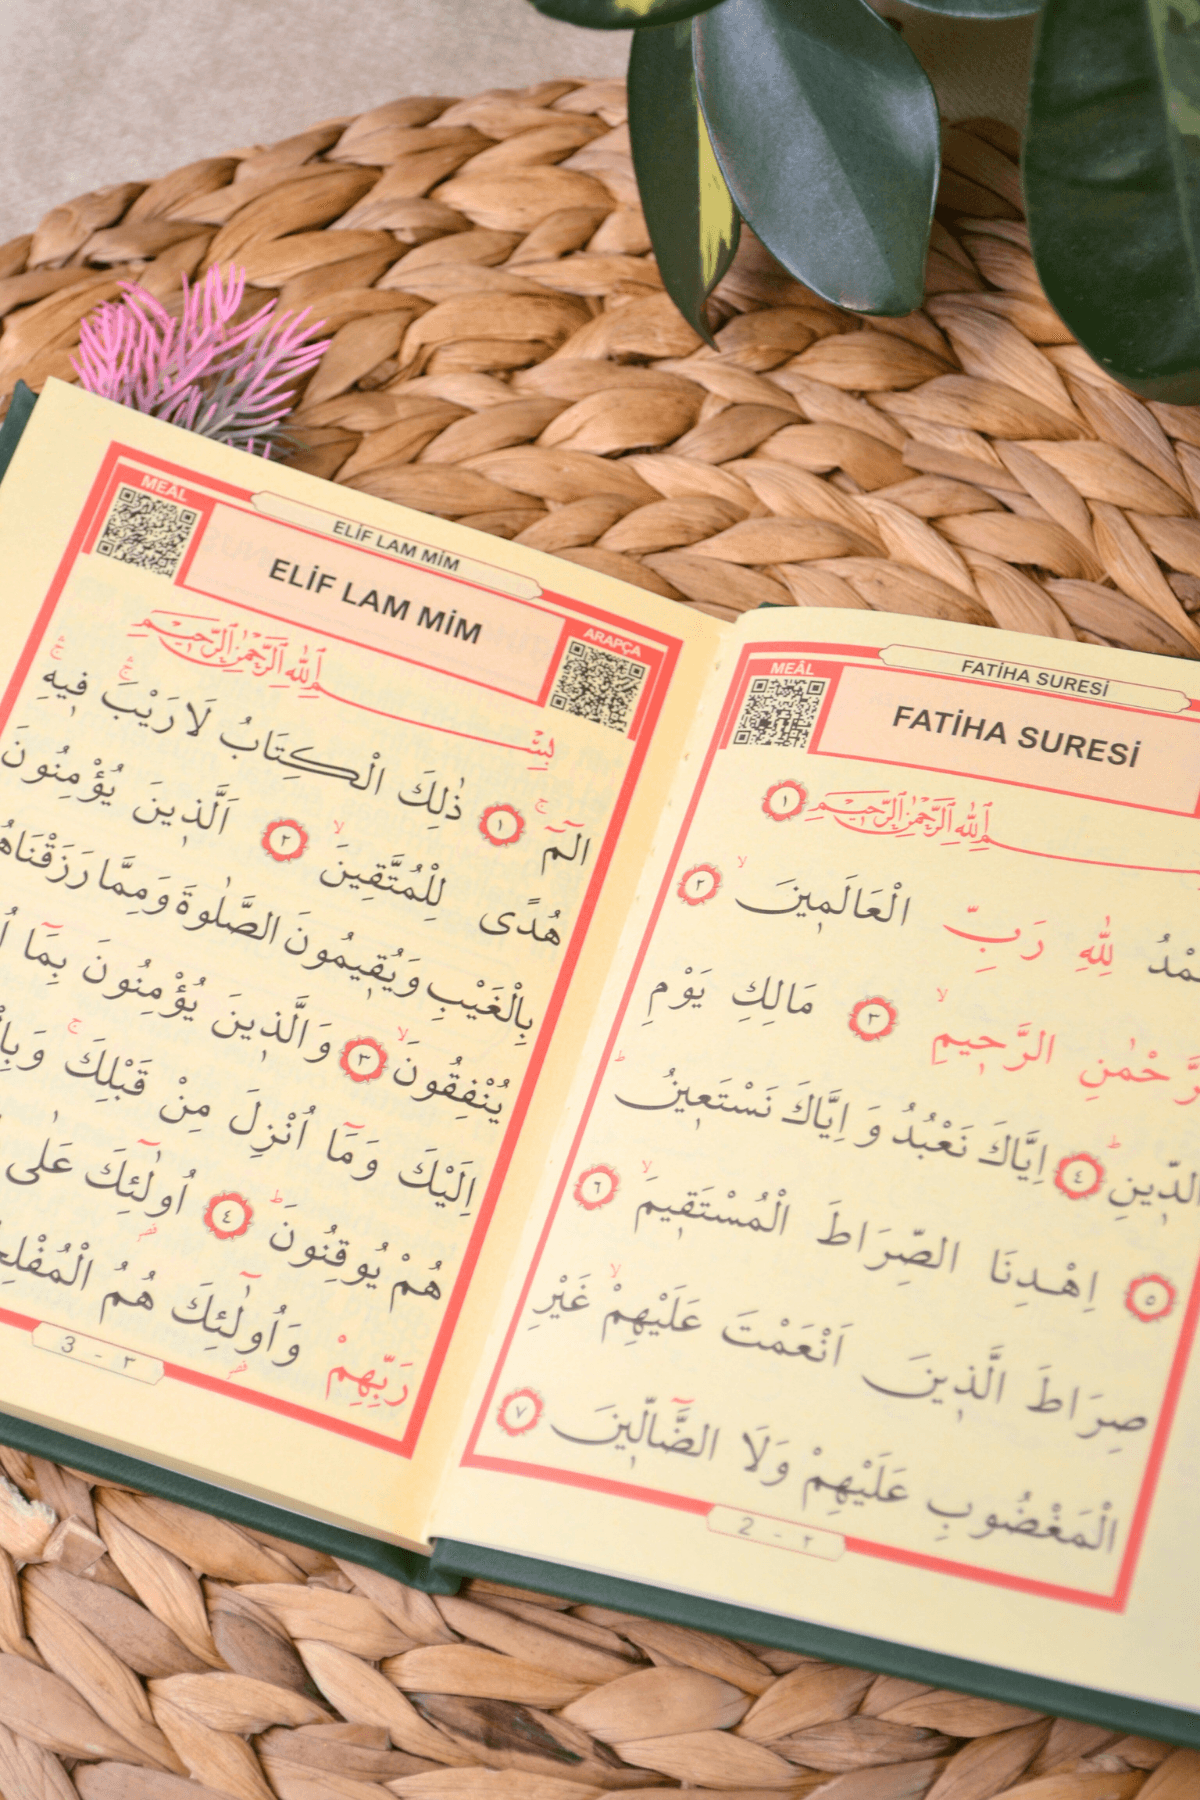 FATİHA SURESİ
MEÂL
FATİHA SURESİ
اللّٰهِ الرَّحْمٰنِ الرَّحِيمِ ١
لِلّٰهِ رَبِّ الْعَالَمِينَ ٢
الرَّحِيمِ ٣ مَالِكِ يَوْمِ
الدِّينِ ٤ اِيَّاكَ نَعْبُدُ وَ اِيَّاكَ نَسْتَعِينُ
٥ اِهْدِنَا الصِّرَاطَ الْمُسْتَقِيمَ ٦
صِرَاطَ الَّذِينَ اَنْعَمْتَ عَلَيْهِمْ غَيْرِ
الْمَغْضُوبِ عَلَيْهِمْ وَلَا الضَّالِّينَ ٧
2 - ٢
ELİF LAM MİM
MEÂL
ELİF LAM MİM
ARAPÇA
بِسْمِ اللّٰهِ الرَّحْمٰنِ الرَّحِيمِ
الٓمٓ ١ ذٰلِكَ الْكِتَابُ لَا رَيْبَ فِيهِ
هُدًى لِلْمُتَّقِينَ ٢ اَلَّذِينَ يُؤْمِنُونَ
بِالْغَيْبِ وَيُقِيمُونَ الصَّلٰوةَ وَمِمَّا
يُنْفِقُونَ ٣ وَالَّذِينَ يُؤْمِنُونَ بِمَٓا
اِلَيْكَ وَمَٓا اُنْزِلَ مِنْ قَبْلِكَ
هُمْ يُوقِنُونَ ٤ اُولٰٓئِكَ عَلٰى
رَبِّهِمْ وَاُولٰٓئِكَ هُمُ
3 - ٣